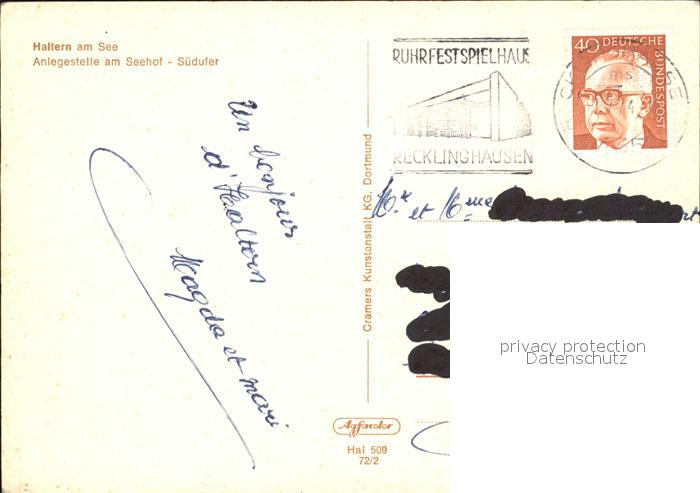 Haltern am See
Anlegestelle am Seehof - Südufer
Un bonjour
d'Haltern
Magda et mari
Cramers Kunstanstalt KG. Dortmund
Agfacolor
Hal 509
72/2
RUHRFESTSPIELHAUS
RECKLINGHAUSEN
40 DEUTSCHE
BUNDESPOST
Mr et Mme
privacy protection
Datenschutz